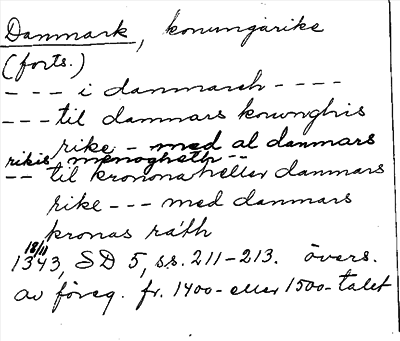 Danmark, konungarike
(forts.)
--- i danmarsh ----
--- til danmars konunghis
rike - med al danmars
rikis menogheth --
-- til kronona heller danmars
rike --- med danmars
kronas råth
18/11
1343, SD 5, ss. 211-213. övers.
av föreg. fr. 1400- eller 1500-talet